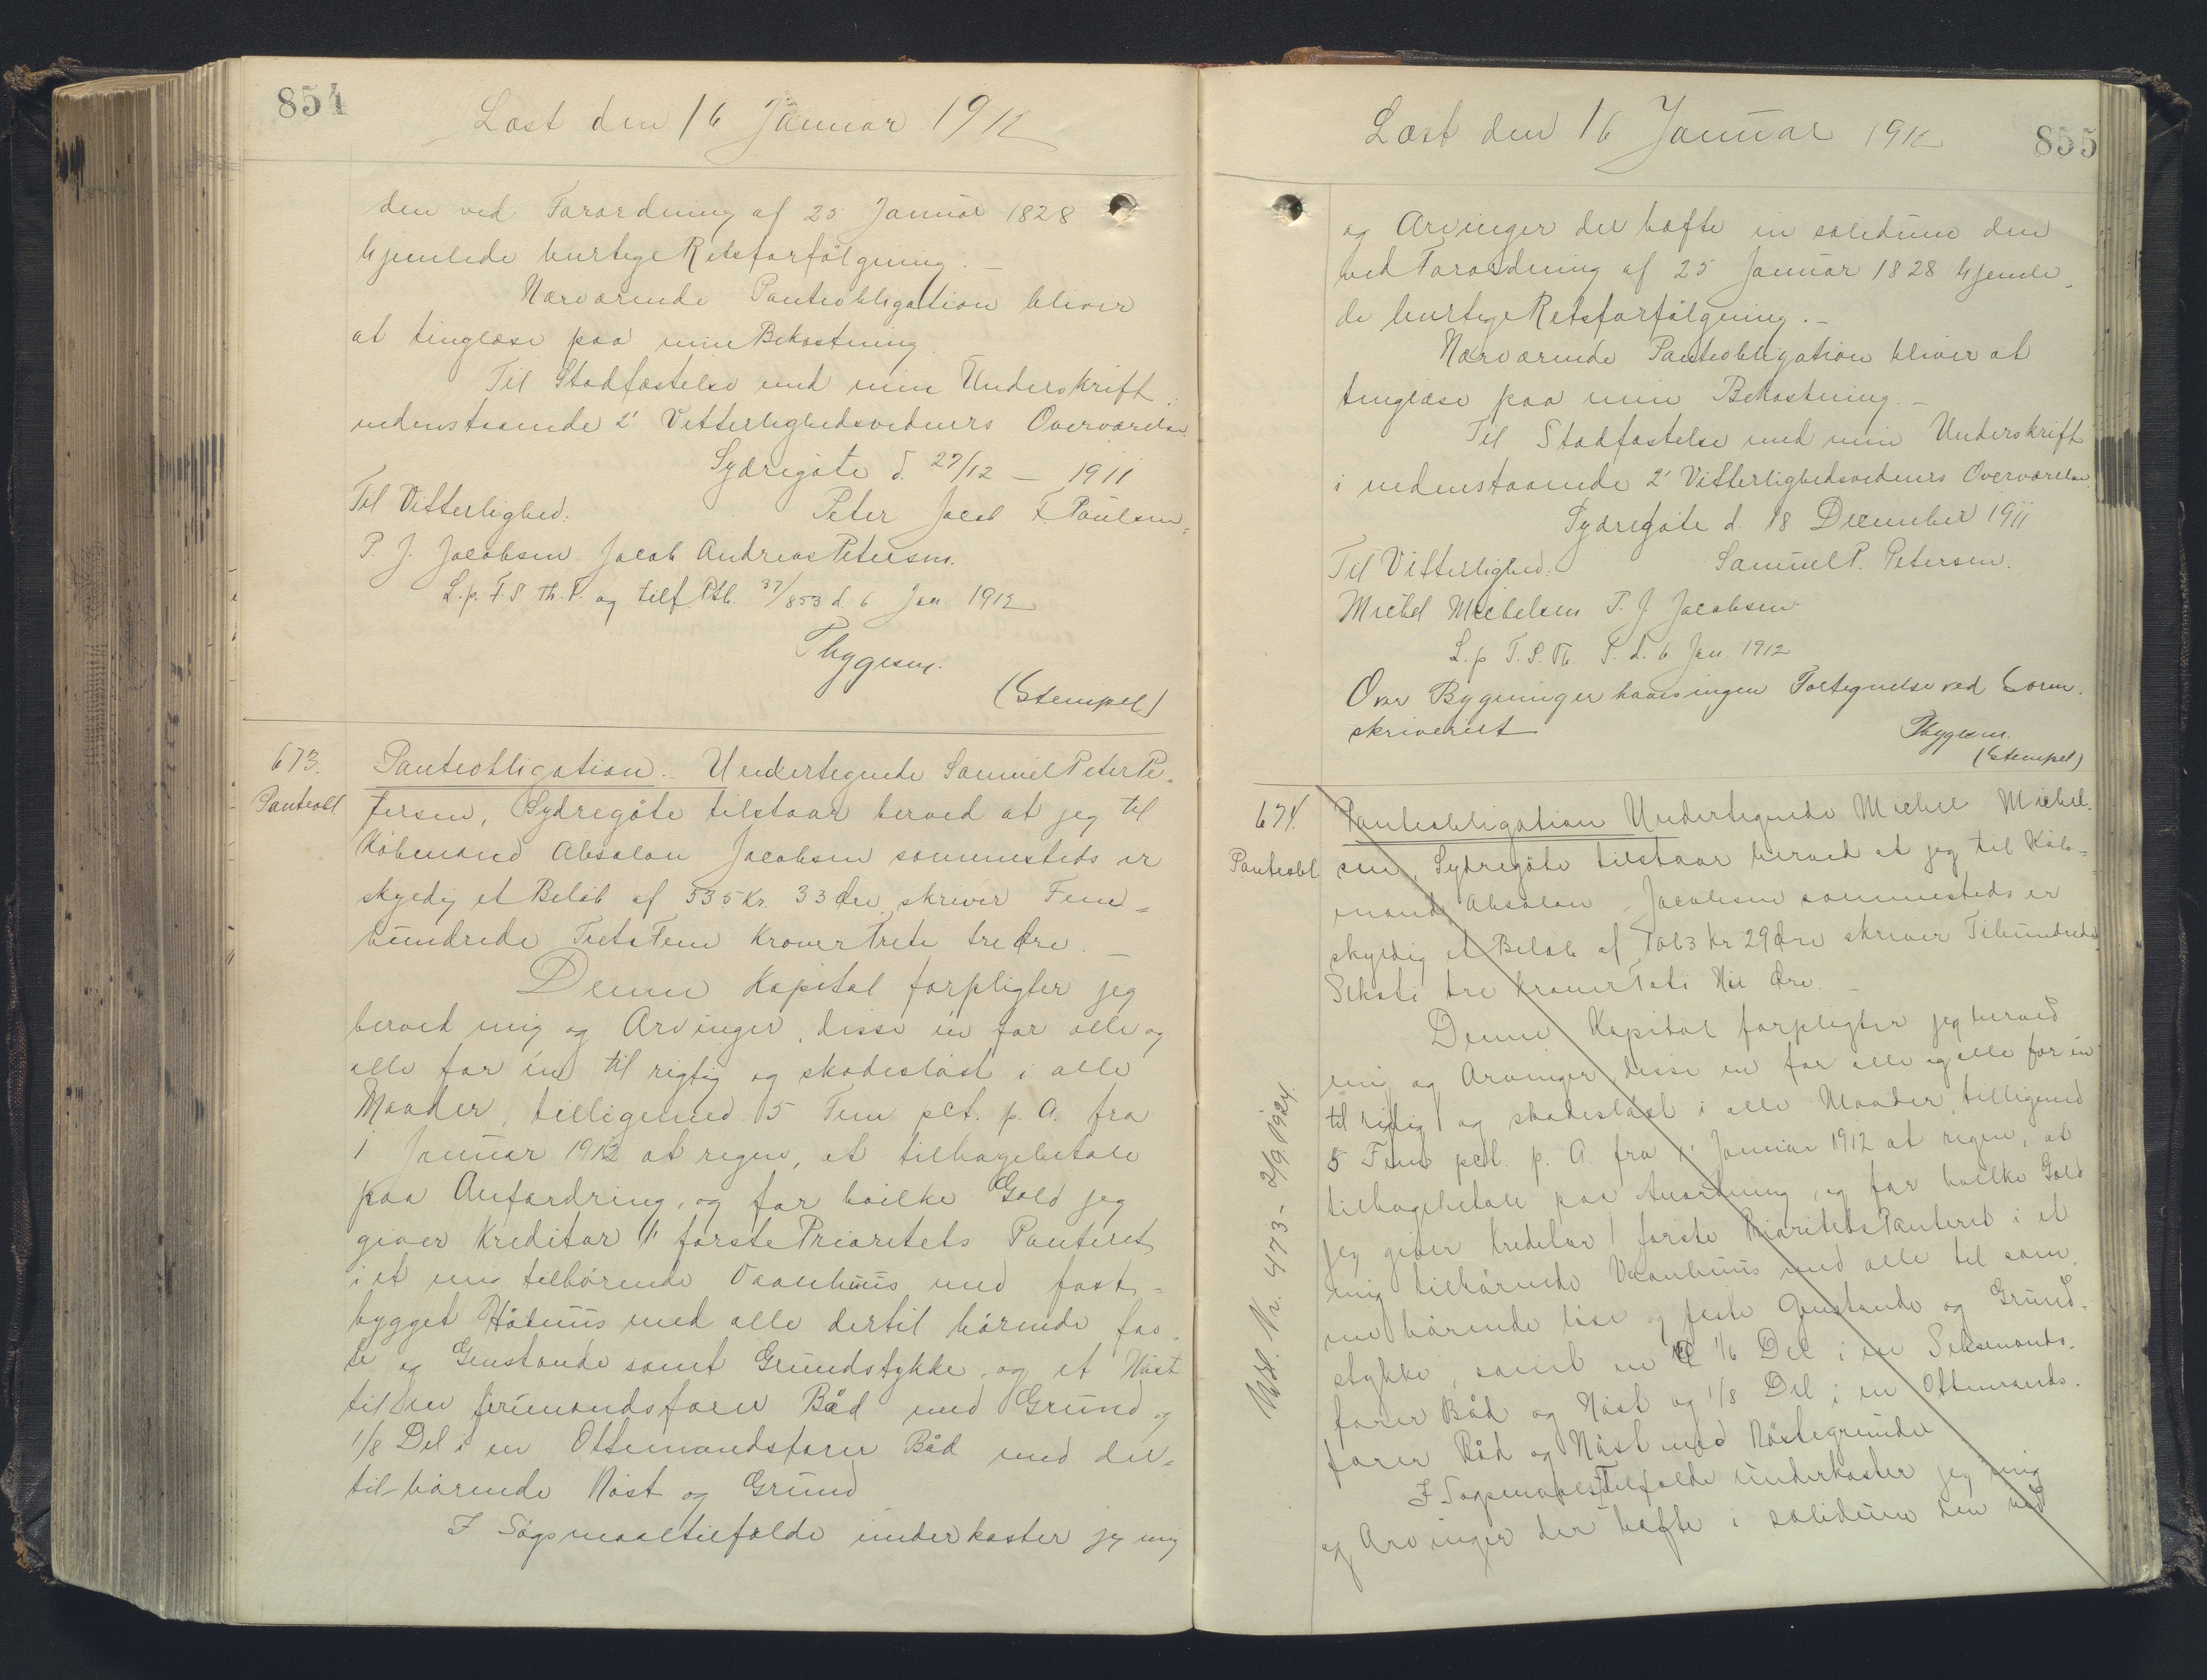 854
Læst den 16 Januar 1912
den ved Forordning af 25 Januar 1828
hjemlede hurtige Retsforfølgning. —
Nærværende Panteobligation bliver
at tinglæse paa min Bekostning.
Til Stadfæstelse med min Underskrift
nedenstaaende 2' Vitterlighedsvidners Overværelse.
Sydregöte d. 27/12 — 1911
Til Vitterlighed: Peter Jacob F. Poulsen
P. J. Jacobsen. Jacob Andreas Petersen.
L. p. F. S. Th. P. og tilf. Ptb. 37/853 d. 6 Jan. 1912
Thygesen.
(Stempel)
673. Panteobligation. Undertegnede Samuel Peter Pe-
Panteobl. tersen, Sydregöte tilstaar herved at jeg til
Købmand Absalon Jacobsen sammesteds er
skyldig et Beløb af 535 Kr. 33 Øre, skriver Fem-
hundrede Treti Fem Kroner Treti tre Øre. —
Denne Kapital forpligter jeg
herved mig og Arvinger, disse én for alle og
alle for én til rigtig og skadesløst i alle
Maader, tilligemed 5 Fem pct. p. A. fra
1 Januar 1912 at regne, at tilbagebetale
paa Anfordring, og for hvilke Gæld jeg
giver Kreditor 1' første Prioritets Panteret
i et mig tilhørende Vaanhuus med fast-
bygget Høhuus med alle dertil hørende fas-
te og Genstande samt Grundstykke, og et Nøst
til en firemandsfarer Båd med Grund og
1/8 Del i en Ottemandsfarer Båd med der-
til hørende Nøst og Grund
I Søgsmaaltilfælde underkaster jeg mig
855
Læst den 16 Januar 1912
og Arvinger der hæfte in solidum den
ved Forordning af 25 Januar 1828 hjemle-
de hurtige Retsforfølgning. —
Nærværende Panteobligation bliver at
tinglæse paa min Bekostning. —
Til Stadfæstelse med min Underskrift
i nedenstaaende 2' Vitterlighedsvidners Overværelse
Sydregöte d. 18 December 1911
Til Vitterlighed: Samuel P. Petersen.
Michel Michelsen P. J. Jacobsen.
L. p. F. S. Th. P. d. 6 Jan. 1912
Over Bygninger haves ingen Fortegnelse ved Soren-
skriveriet
Thygesen.
(Stempel)
674. Panteobligation Undertegnede Michel Michel-
Panteobl. sen, Sydregöte tilstaar herved at jeg til Køb-
mand Absalon Jacobsen sammesteds er
skyldig et Beløb af 1063 Kr 29 Øre skriver Tihundrede
Seksti tre Kroner Toti Ni Øre. —
Denne Kapital forpligter jeg herved
mig og Arvinger, disse en for alle og alle for én
til rigtig og skadesløst i alle Maader, tilligemed
5 Fem pct. p. A. fra 1' Januar 1912 at regne, at
tilbagebetale paa Anfordring, og for hvilke Gæld
jeg giver Kreditor 1 første Prioritets Panteret i et
mig tilhørende Vaanhuus med alle til sam-
me hørende løse og faste Genstande og Grund-
stykke, samt en 1/6 Del i en Seksmands-
farer Båd og Nøst og 1/8 Del i en Ottemands-
farer Båd og Nøst med Nøstegrunde
I Søgsmaals Tilfælde underkaster jeg mig
og Arvinger der hæfte i solidum den ved
Udsl. Nr. 473 - 2/9 1924.